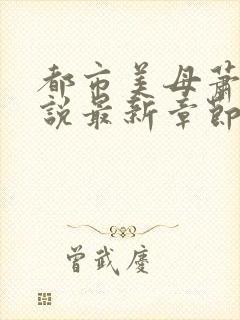 都市美母萧
說最新章節
曾武慶